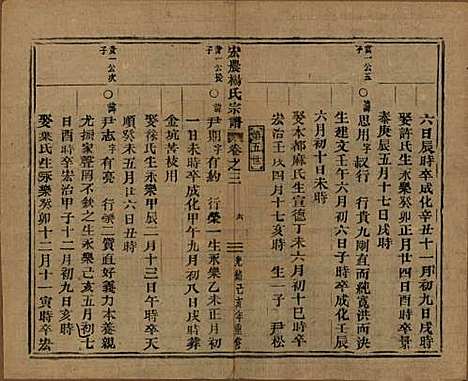 六日辰時卒成化辛丑十一月初九日戌時
娶許氏生永樂癸卯正月廿四日酉時卒景
泰庚辰五月十七日戌時
富一公五子
○諱思用字叔行 行貴九剛直而純寬洪而決
生建文壬午六月初六日子時卒成化壬辰
六月初十日未時
娶本都麻氏生宣德丁未六月初十日巳時卒
宏治壬戌四月十七亥時 生一子 尹松
第五世
宏農楊氏宗譜 卷之二 六 光緒己亥年重修
富一公長子
○諱尹期字有約 行榮一生永樂乙未正月初
一日未時卒成化甲午九月初八日戌時葬
金坑苦枝用
娶徐氏生永樂甲辰二月十三日午時卒天
順癸未五月廿六日丑時
富一公次子
○諱尹志字有亮 行二質直好義力本養親
尤振家聲閤不替生永樂己亥五月初七
日酉時卒宏治甲子十二月初九日亥時
娶葉氏生永樂癸卯十二月十一寅時卒宏